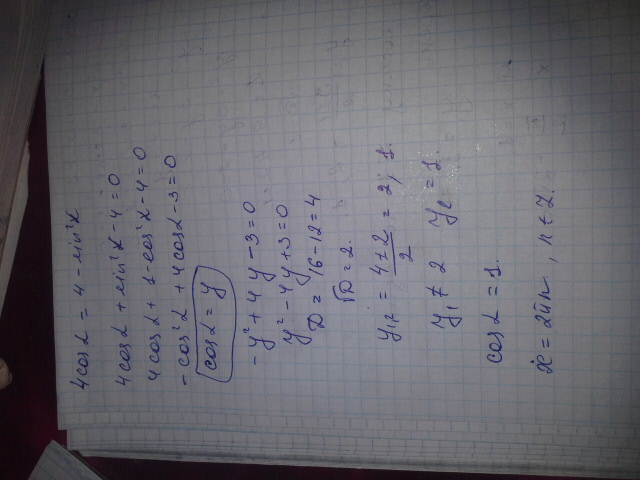 4cosα = 4 - sin²x
4cosα + sin²x - 4 = 0
4cosα + 1 - cos²x - 4 = 0
- cos²α + 4cosα - 3 = 0
cosα = y
- y² + 4y - 3 = 0
y² - 4y + 3 = 0
D = 16 - 12 = 4
√D = 2
y₁,₂ = (4 ± 2)/2 = 2, 1.
y₁ ≠ 2 y₂ = 1.
cosα = 1.
x = 2πn, n ∈ Z.